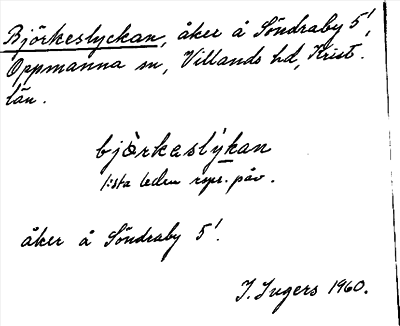 Björkeslyckan, åker å Söndraby 5¹,
Oppmanna sn, Villands hd, Krist.
län.
bjòrkeslýkan
1:sta leden repr. påv.
åker å Söndraby 5¹.
J. Ingers 1960.